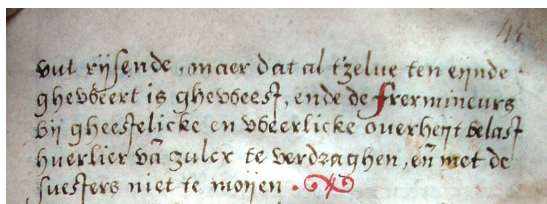 45
vut rijsende, maer dat al t'zelue ten eijnde
gheweert is gheweest, ende de frermineurs
bij gheestelicke en weerlicke ouerheijt belast
huerlier vā zulcx te verdraghen, en̄ met de
suesters niet te moijen.